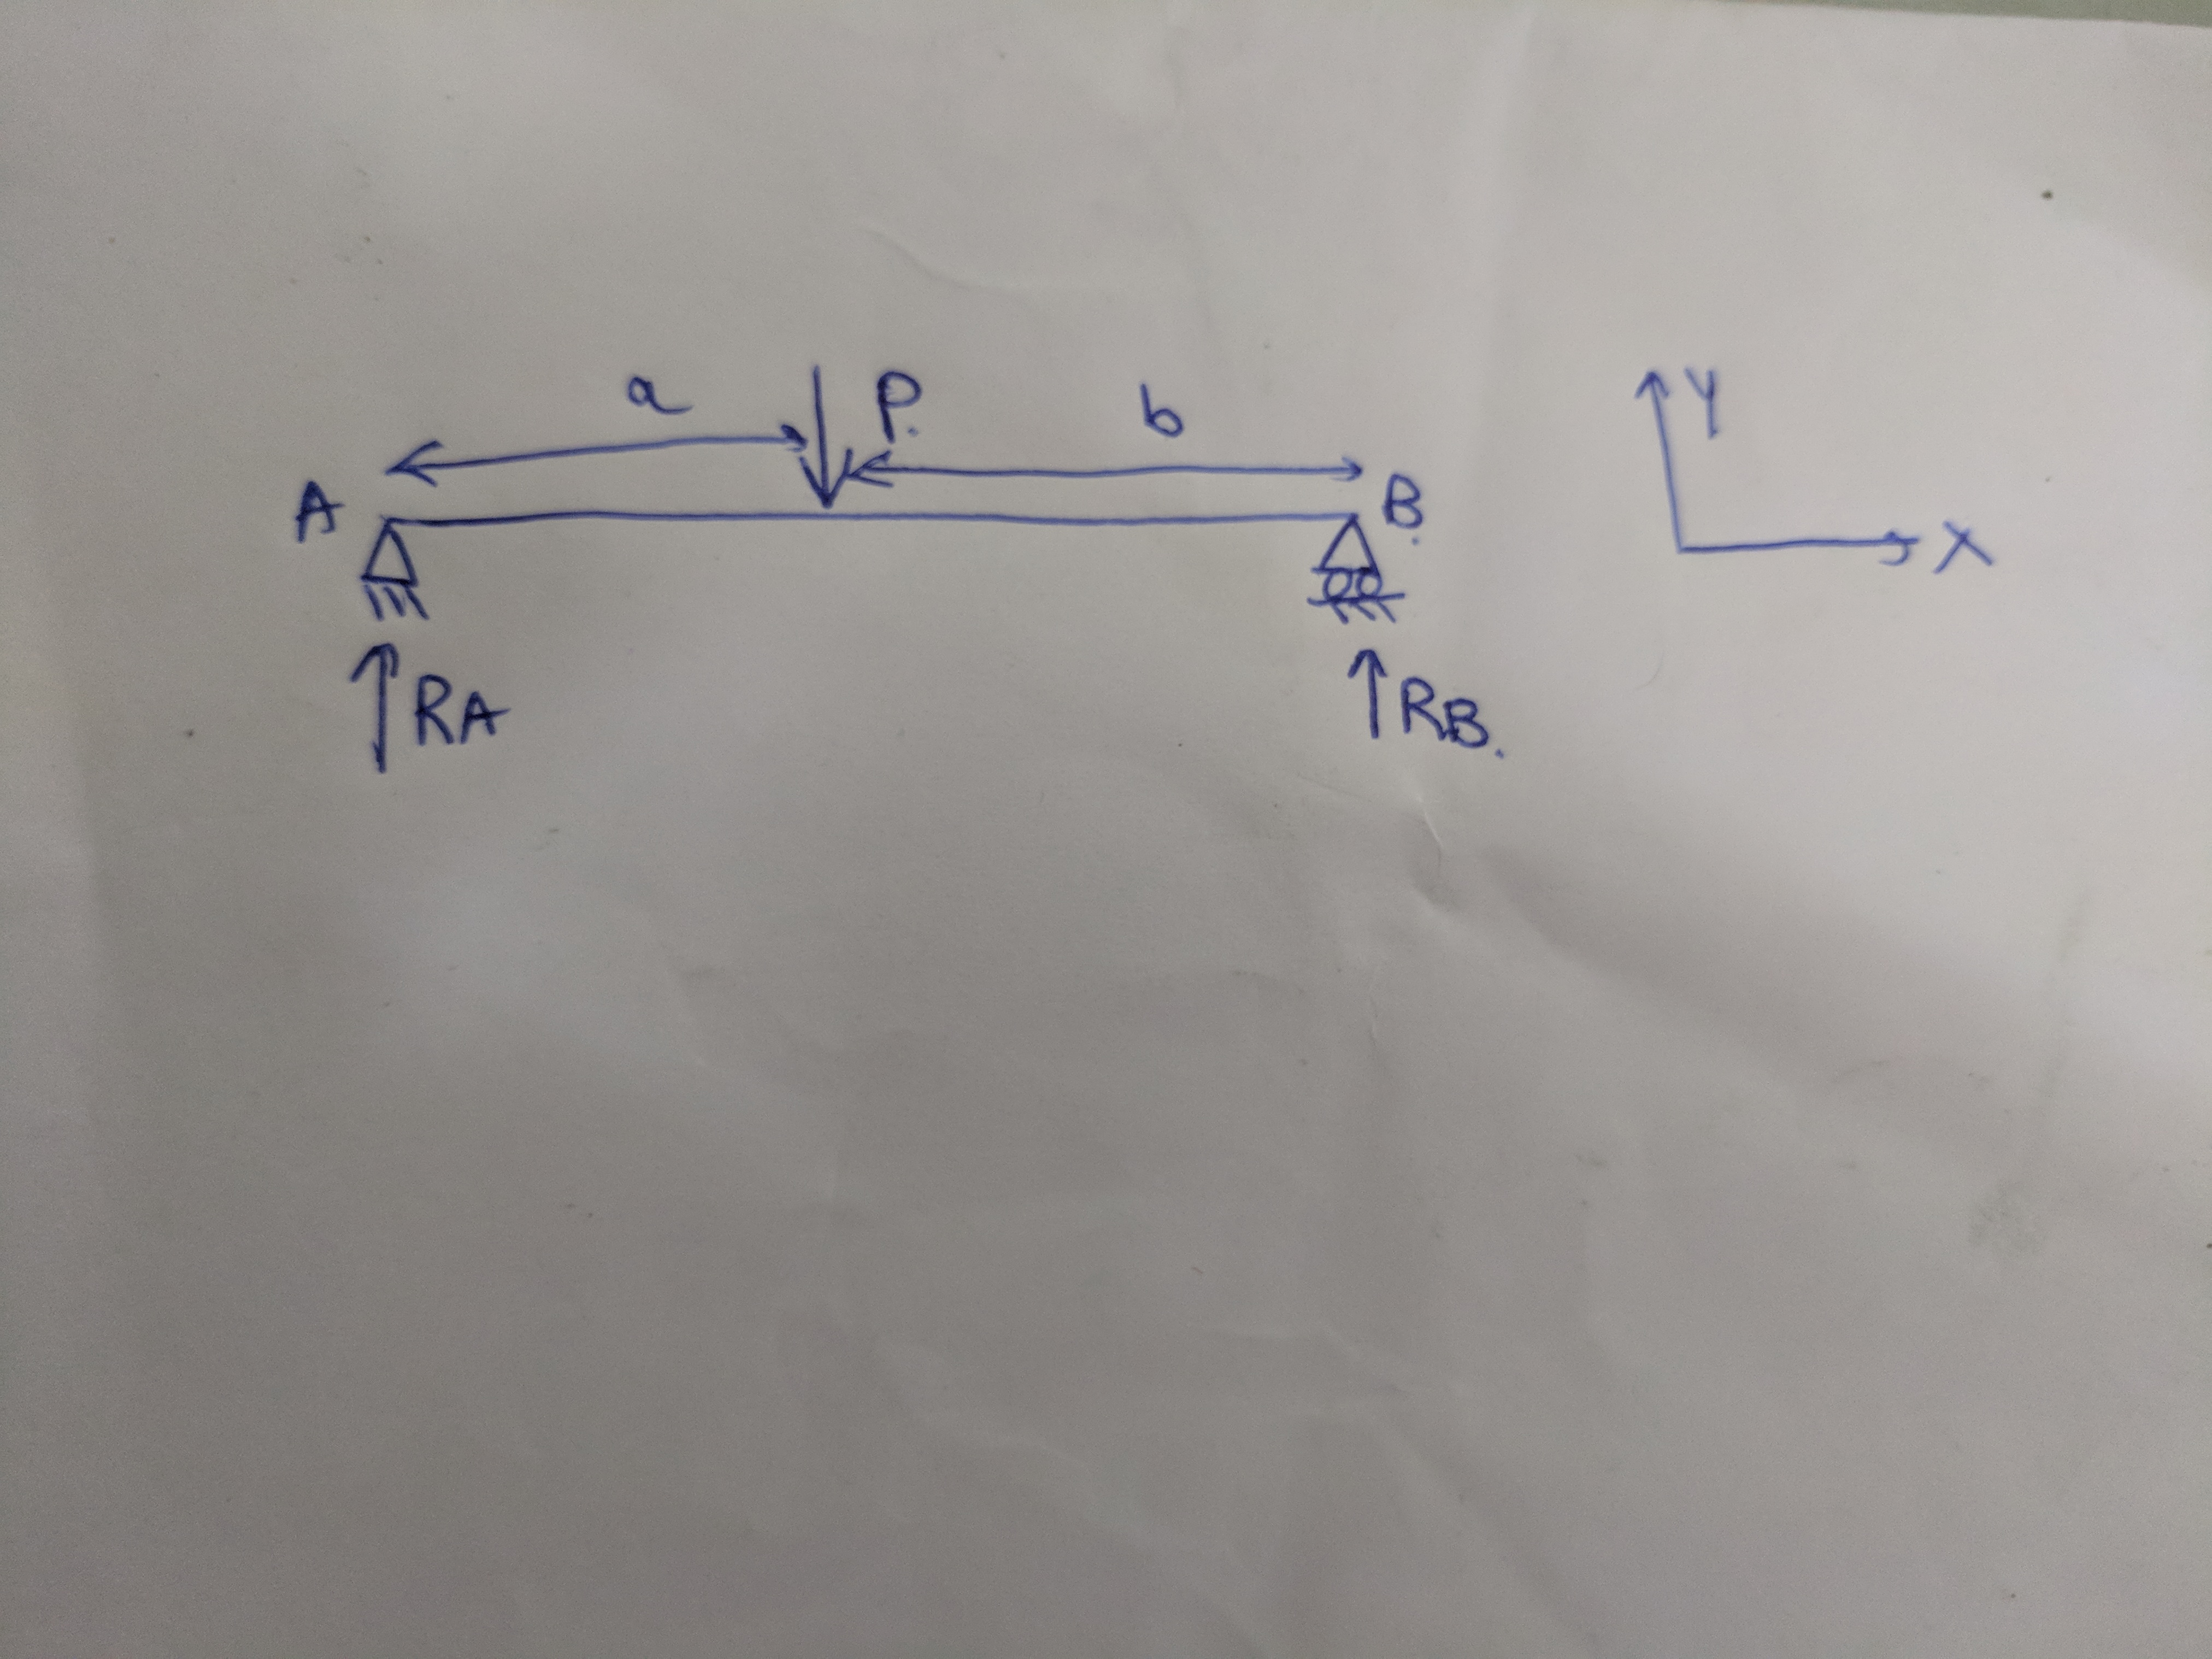 a P. b Y
A B. X
RA RB.